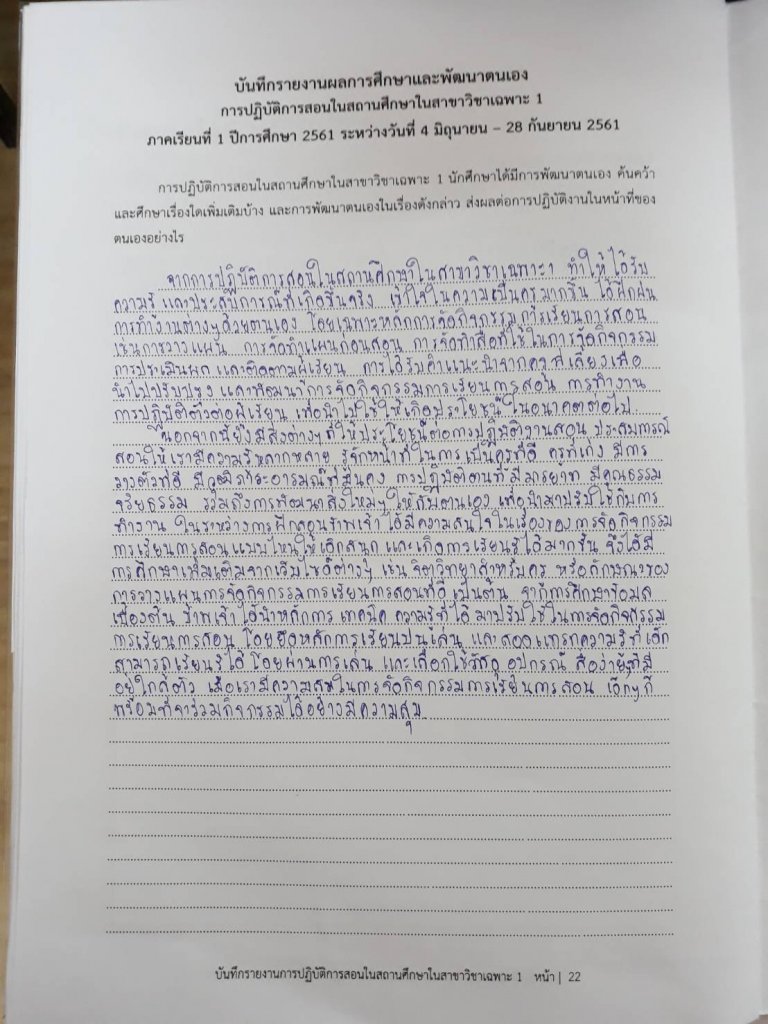 บันทึกรายงานผลการศึกษาและพัฒนาตนเอง
การปฏิบัติการสอนในสถานศึกษาในสาขาวิชาเฉพาะ 1
ภาคเรียนที่ 1 ปีการศึกษา 2561 ระหว่างวันที่ 4 มิถุนายน – 28 กันยายน 2561
การปฏิบัติการสอนในสถานศึกษาในสาขาวิชาเฉพาะ 1 นักศึกษาได้มีการพัฒนาตนเอง ค้นคว้า
และศึกษาเรื่องใดเพิ่มเติมบ้าง และการพัฒนาตนเองในเรื่องดังกล่าว ส่งผลต่อการปฏิบัติงานในหน้าที่ของ
ตนเองอย่างไร
จากการปฏิบัติการสอนในสถานศึกษาในสาขาวิชาเฉพาะ1 ทำให้ได้รับ
ความรู้ และประสบการณ์ที่เกิดขึ้นจริง เข้าใจในความเป็นครูมากขึ้น ได้ฝึกฝน
การทำงานต่างๆด้วยตนเอง โดยเฉพาะหลักการจัดกิจกรรมการเรียนการสอน
เช่นการวางแผน การจัดทำแผนก่อนสอน การจัดทำสื่อที่ใช้ในการจัดกิจกรรม
การประเมินผล และติดตามผู้เรียน การได้รับคำแนะนำจากครูพี่เลี้ยงเพื่อ
นำไปปรับปรุง และพัฒนาการจัดกิจกรรมการเรียนการสอน การทำงาน
การปฏิบัติตัวต่อผู้เรียน เพื่อนำไปใช้ให้เกิดประโยชน์ ในอนาคตต่อไป
นอกจากนี้ยังมีสิ่งต่างๆที่ให้ประโยชน์ต่อการปฏิบัติงานสอน ประสบการณ์
สอนให้เรามีความรู้หลากหลาย รู้จักหน้าที่ในการ เป็นครูที่ดี ครูที่เก่ง มีการ
วางตัวที่ดี มีวุฒิภาวะอารมณ์ที่มั่นคง การปฏิบัติตนที่มีมารยาท มีคุณธรรม
จริยธรรม รวมถึงการพัฒนาสิ่งใหม่ๆให้กับตนเอง เพื่อนำมาปรับใช้กับการ
ทำงาน ในระหว่างการฝึกสอนข้าพเจ้า ได้มีความสนใจในเรื่องของการจัดกิจกรรม
การเรียนการสอนแบบไหนให้เด็กสนุก และเกิดการเรียนรู้ได้มากขึ้น จึงได้มี
การศึกษาเพิ่มเติมจากเว็บไซต์ต่างๆ เช่น จิตวิทยาสำหรับครู หรือลักษณะของ
การวางแผนการจัดกิจกรรมการเรียนการสอนที่ดี เป็นต้น จากการศึกษาข้อมูล
เบื้องต้น ข้าพเจ้าได้นำหลักการ เทคนิค ความรู้ที่ได้ มาปรับใช้ในการจัดกิจกรรม
การเรียนการสอน โดยยึดหลักการเรียนปนเล่น และสอดแทรกความรู้ที่เด็ก
สามารถเรียนรู้ได้ โดยผ่านการเล่น และเลือกใช้วัสดุ อุปกรณ์ สื่อง่ายๆที่มี
อยู่ใกล้ตัว เมื่อเรามีความสุขในการจัดกิจกรรมการเรียนการสอน เด็กๆก็
พร้อมที่จะร่วมกิจกรรมได้อย่างมีความสุข
บันทึกรายงานการปฏิบัติการสอนในสถานศึกษาในสาขาวิชาเฉพาะ 1 หน้า | 22